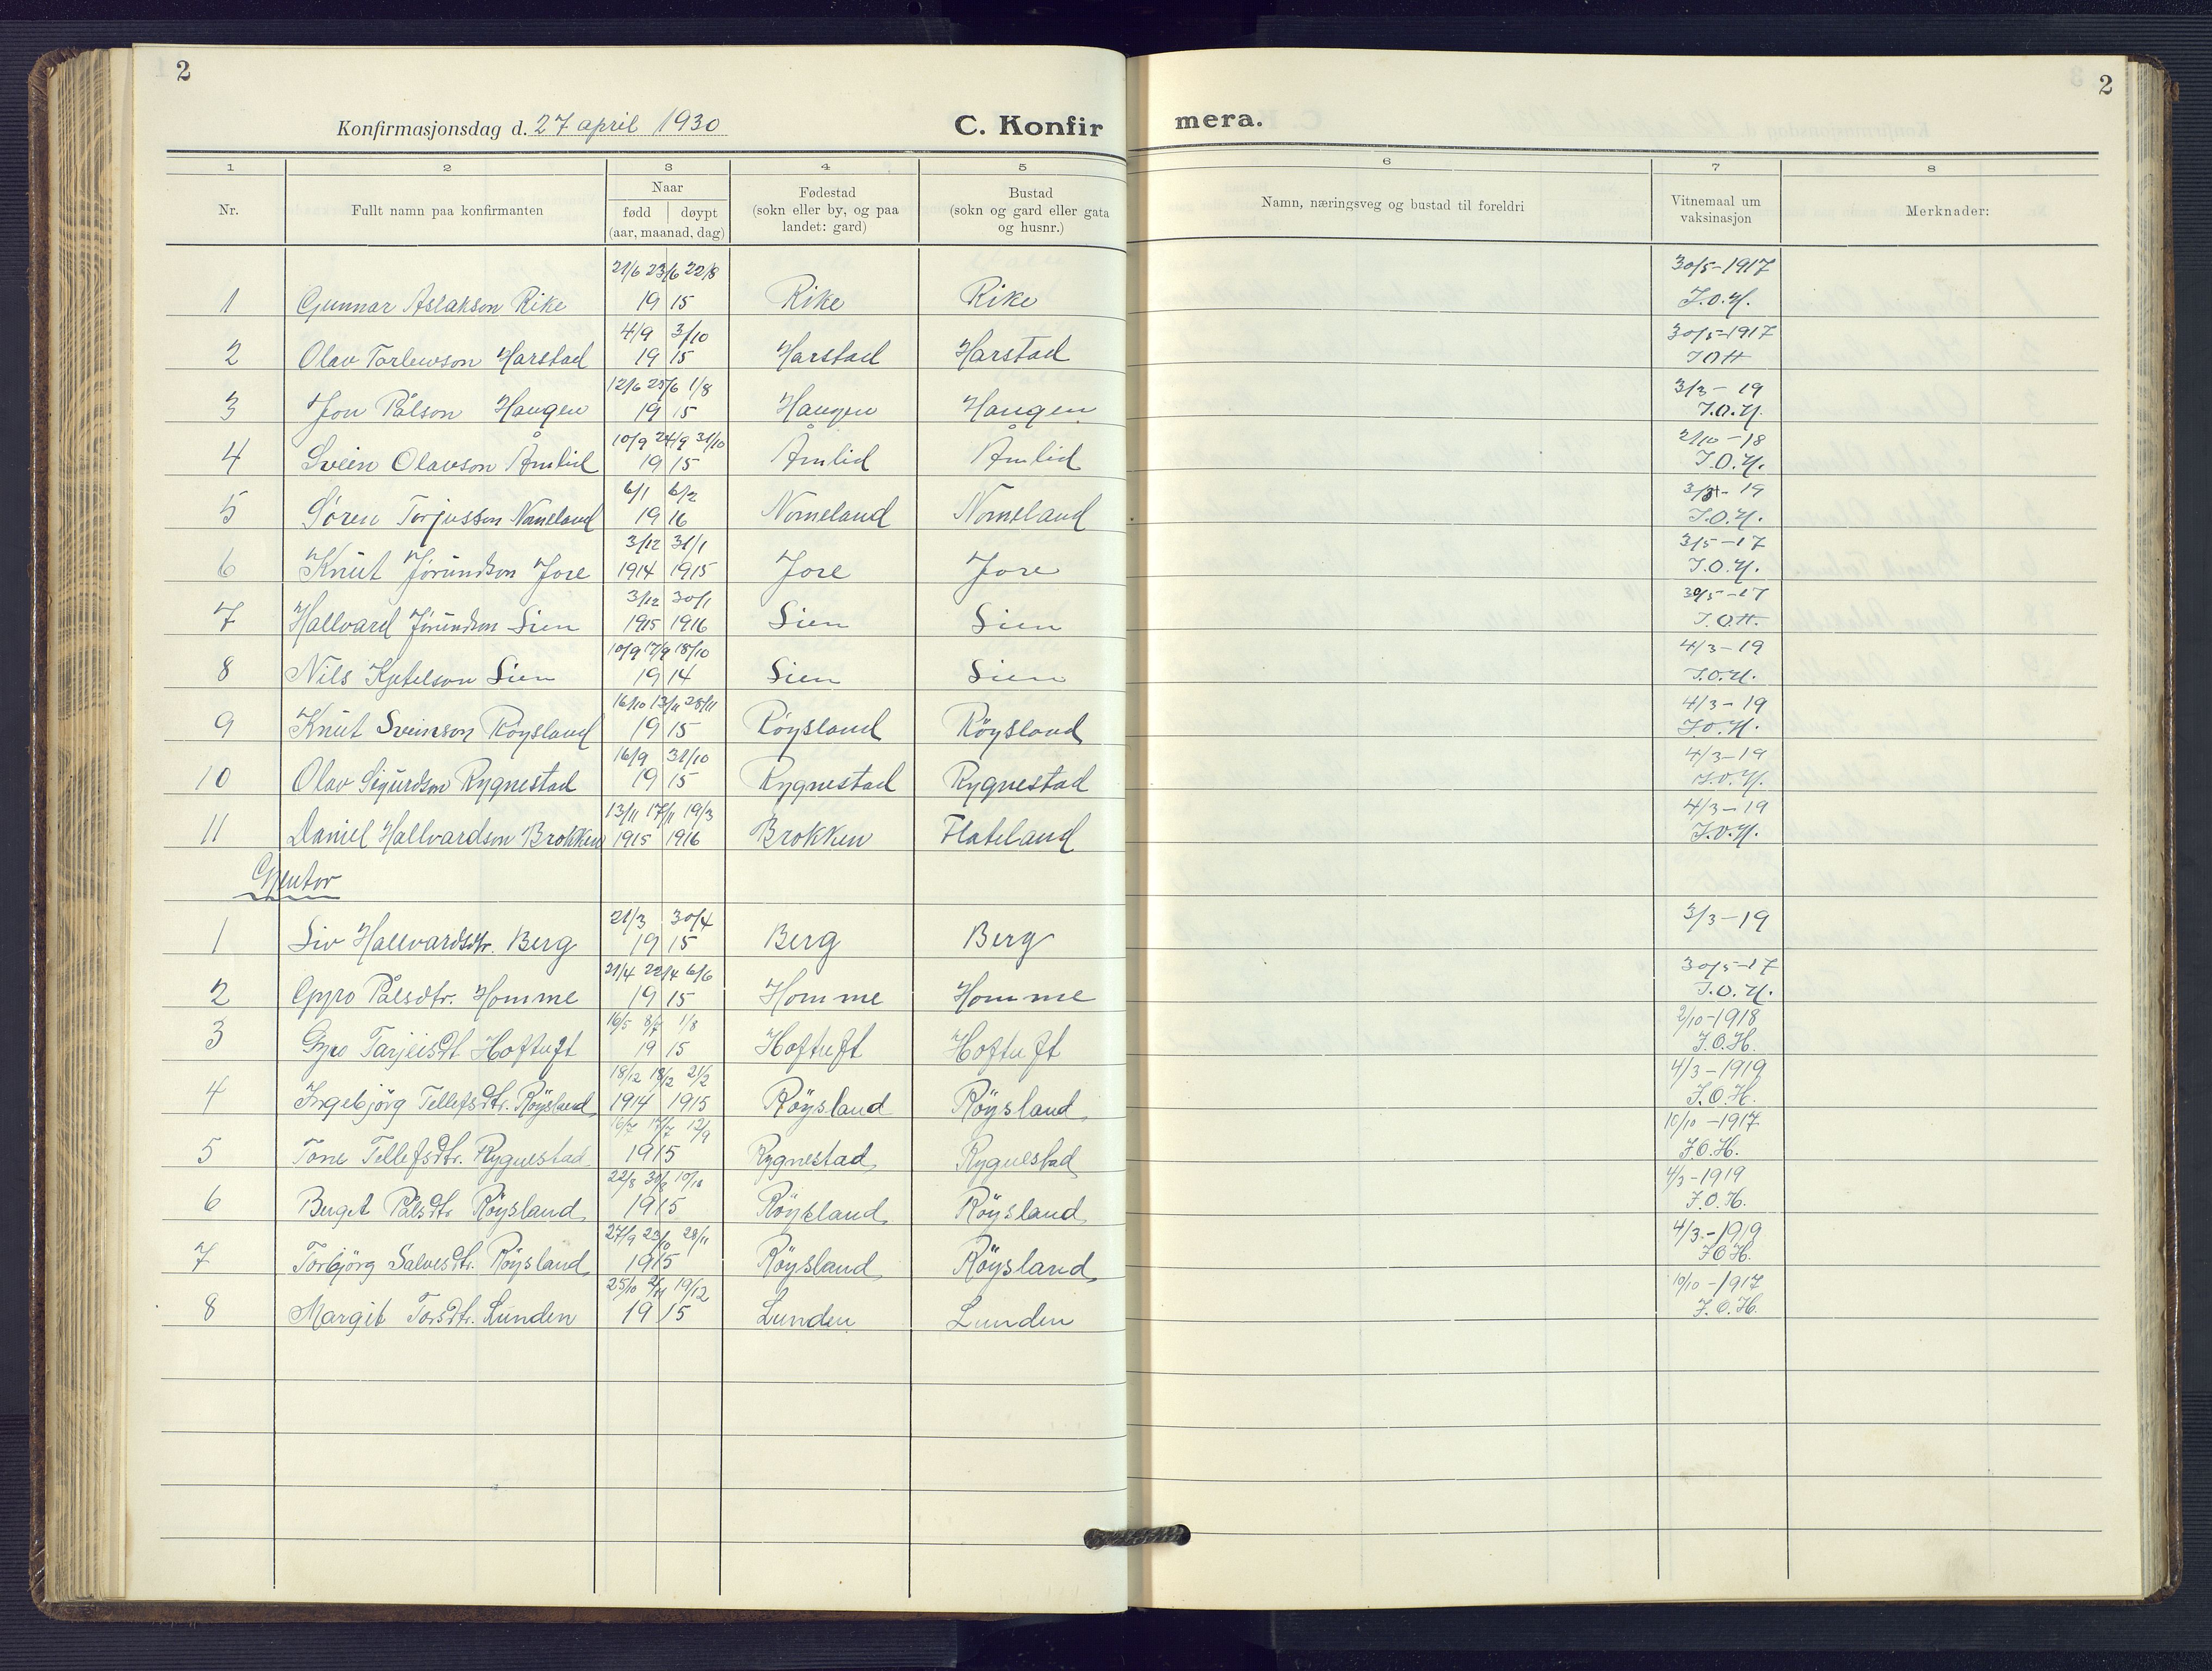 2
Konfirmasjonsdag d. 27 april 1930
C. Konfirmera.
2
1 2 3 4 5 6 7 8
Nr. | Fullt namn paa konfirmanten | Naar fødd | døypt (aar, maanad, dag) | Fødestad (sokn eller by, og paa landet: gard) | Bustad (sokn og gard eller gata og husnr.) | Namn, næringsveg og bustad til foreldri | Vitnemaal um vaksinasjon | Merknader:
21/6 23/6 22/8 30/5-1917
1 Gunnar Aslakson Rike 19 15 Rike Rike J.O.H.
4/9 3/10 30/5-1917
2 Olav Torleivson Harstad 19 15 Harstad Harstad J O H
12/6 25/6 1/8 3/3- 19
3 Jon Pålson Haugen 19 15 Haugen Haugen J.O.H.
10/9 24/9 31/10 2/10-18
4 Svein Olavson Åmlid 19 15 Åmlid Åmlid J.O.H.
6/1 6/2 19
5 Søren Torjusson Nomeland 19 16 Nomeland Nomeland J.O.H.
3/12 31/1 3/5-17
6 Knut Jørundson Jore 1914 1915 Jore Jore J.O.H.
3/12 30/1 30/5-17
7 Hallvard Jørundson Lien 1915 1916 Lien Lien J.O.H.
10/9 17/9 18/10 4/3-19
8 Nils Kjetelson Lien 19 14 Lien Lien J.O.H.
16/10 13/11 28/11 4/3-19
9 Knut Sveinson Röysland 19 15 Röysland Röysland J.O.H.
16/9 31/10 4/3-19
10 Olav Sigurdson Rygnestad 19 15 Rygnestad Rygnestad J.O.H.
13/11 17/11 19/3 4/3-19
11 Daniel Hallvardson Brokken 1915 1916 Brokken Flateland J.O.H.
Gjentor
21/3 30/4 3/3-19
1 Liv Hallvardsdtr. Berg 19 15 Berg Berg
21/4 22/4 6/6 30/5-17
2 Gyro Pålsdtr. Homme 19 15 Homme Homme J.O.H.
16/5 8/7 1/8 2/10-1918
3 Gyro Tarjeisdt Hoftuft 19 15 Hoftuft Hoftuft J.O.H.
18/12 18/12 21/2 4/3-1919
4 Ingebjörg Tellefsdtr. Röysland 1914 1915 Röysland Röysland J.O.H.
16/7 17/7 12/9 10/10-1917
5 Tone Tellefsdtr. Rygnestad 1915 Rygnestad Rygnestad J.O.H.
22/8 31/8 10/10 4/3-1919
6 Birgit Pålsdtr Röysland 1915 Röysland Röysland J.O.H.
27/9 23/10 28/11 4/3-1919
7 Torbjörg Salvesdtr. Röysland 1915 Röysland Röysland J.O.H.
25/10 2/11 19/12 10/10-1917
8 Margit Torsdtr. Lunden 19 15 Lunden Lunden J.O.H.